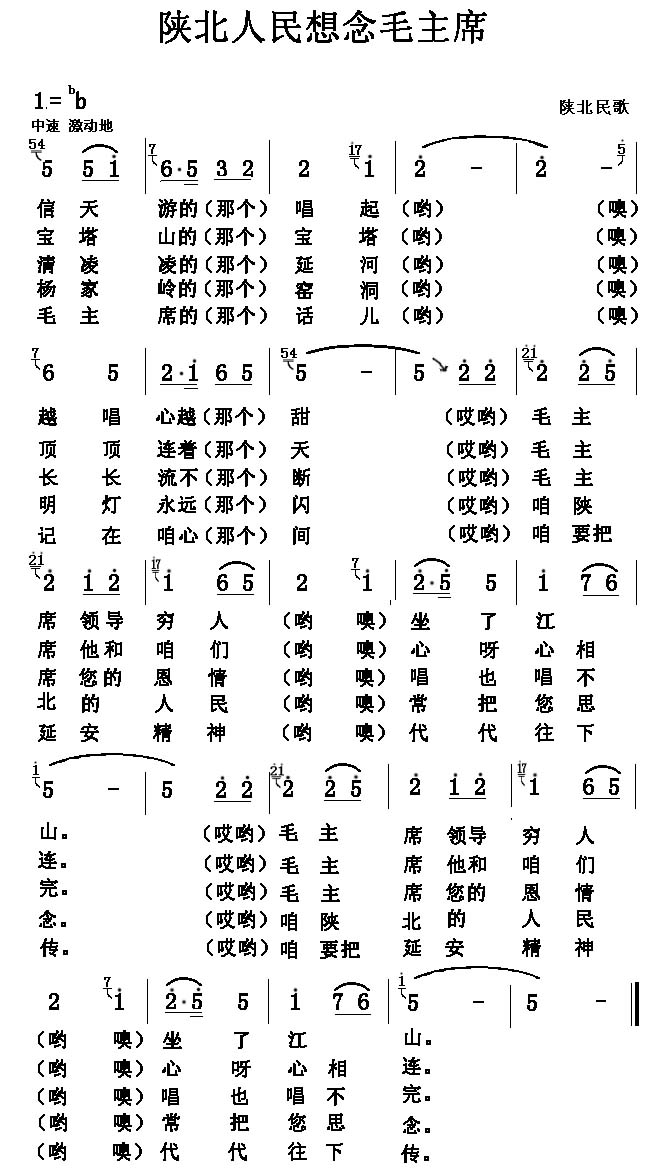 陕北人民想念毛主席
1.= ᵇb
陕北民歌
中速 激动地
54 5 5 i | 7 6·5 3 2 | 2 i7 i | 2 - | 2 - 5 |
信天 游的(那个) 唱 起 (哟) (噢)
宝塔 山的(那个) 宝 塔 (哟) (噢)
清凌 凌的(那个) 延 河 (哟) (噢)
杨家 岭的(那个) 窑 洞 (哟) (噢)
毛主 席的(那个) 话 儿 (哟) (噢)
7 6 5 | 2·i 6 5 | 54 5 - | 5 2 2 | 2i 2 2 5 |
越 唱 心越(那个) 甜 (哎哟) 毛 主
顶 顶 连着(那个) 天 (哎哟) 毛 主
长 长 流不(那个) 断 (哎哟) 毛 主
明 灯 永远(那个) 闪 (哎哟) 咱 陕
记 在 咱心(那个) 间 (哎哟) 咱 要把
2i 2 i 2 | i7 i 6 5 | 2 7 i | 2·5 5 | i 7 6 |
席 领导 穷 人 (哟 噢) 坐 了 江
席 他和 咱 们 (哟 噢) 心 呀 心 相
席 您的 恩 情 (哟 噢) 唱 也 唱 不
北 的 人 民 (哟 噢) 常 把 您 思
延 安 精 神 (哟 噢) 代 代 往 下
i 5 - | 5 2 2 | 2i 2 2 5 | 2 i 2 | i7 i 6 5 |
山。 (哎哟) 毛 主 席 领导 穷 人
连。 (哎哟) 毛 主 席 他和 咱 们
完。 (哎哟) 毛 主 席 您的 恩 情
念。 (哎哟) 咱 陕 北 的 人 民
传。 (哎哟) 咱 要把 延 安 精 神
2 7 i | 2·5 5 | i 7 6 | i 5 - | 5 - ‖
(哟 噢) 坐 了 江 山。
(哟 噢) 心 呀 心 相 连。
(哟 噢) 唱 也 唱 不 完。
(哟 噢) 常 把 您 思 念。
(哟 噢) 代 代 往 下 传。